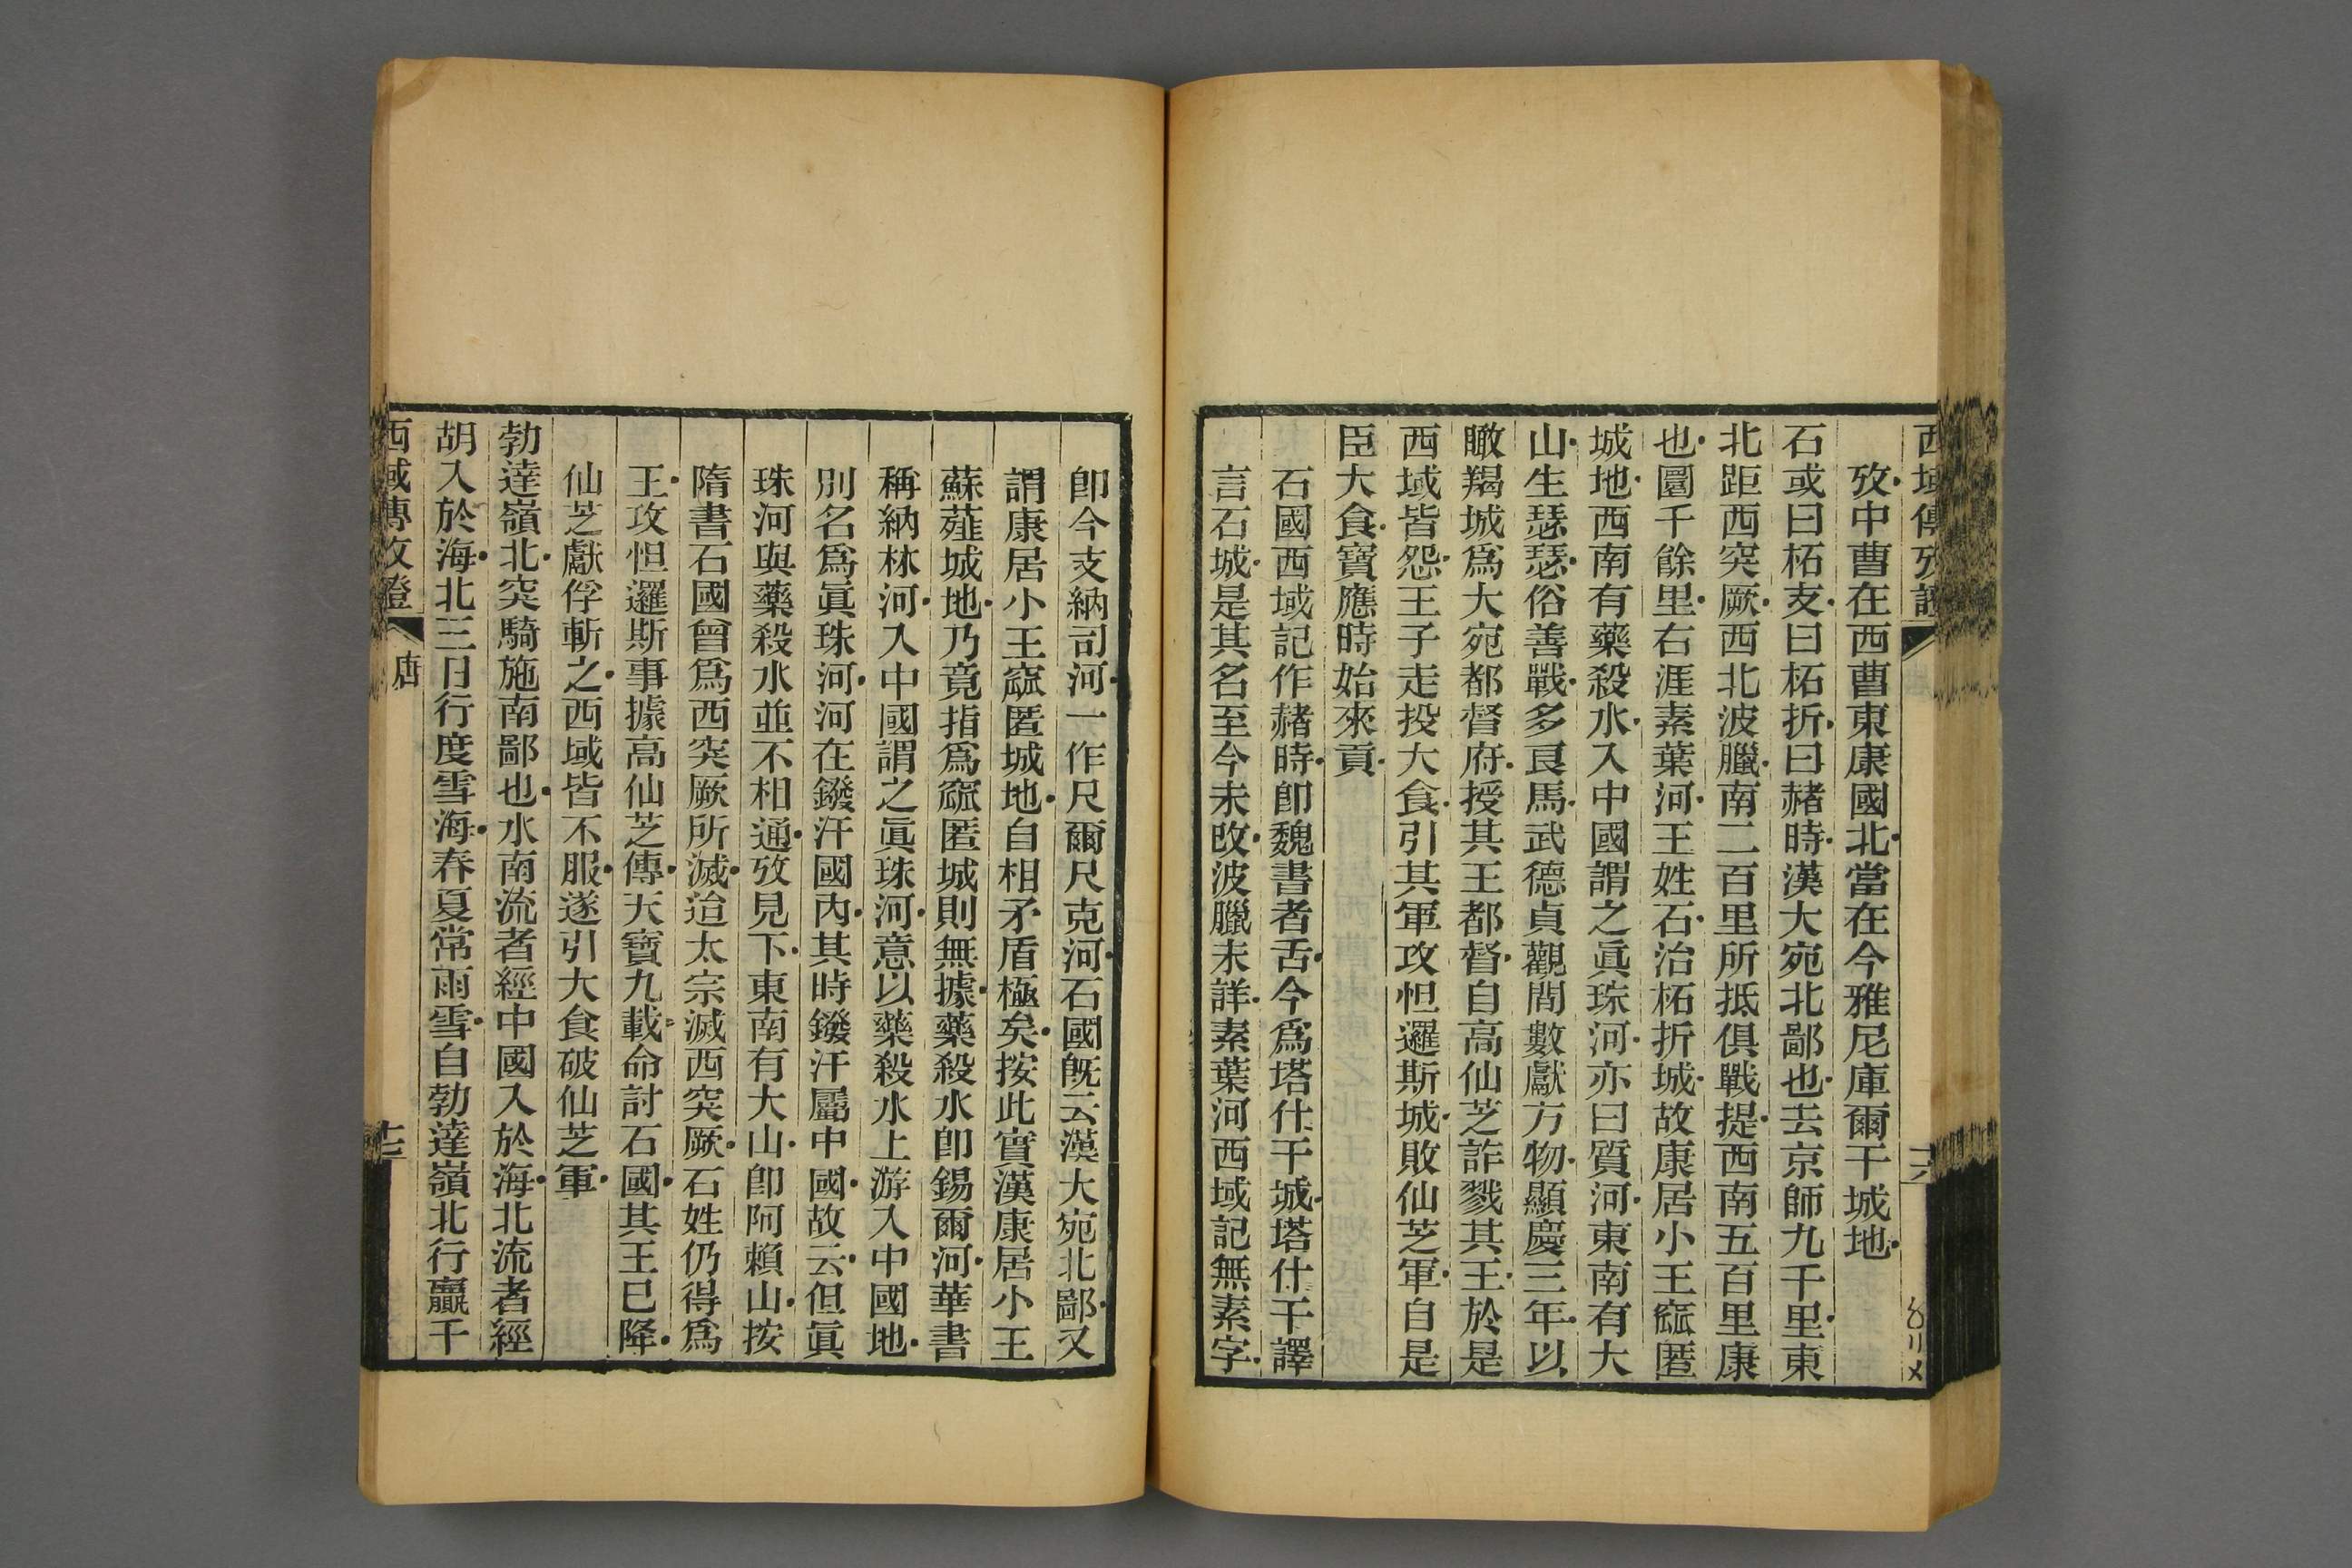 西域傳攷證
十六
攷中曹在西曹東康國北當在今雅尼庫爾干城地
石或曰柘支曰柘折曰赭時漢大宛北鄙也去京師九千里東
北距西突厥西北波臘南二百里所抵俱戰提西南五百里康
也圜千餘里右涯素葉河王姓石治柘折城故康居小王窳匿
城地西南有藥殺水入中國謂之眞珠河亦曰質河東南有大
山生瑟瑟俗善戰多良馬武德貞觀間數獻方物顯慶三年以
瞰羯城爲大宛都督府授其王都督自高仙芝詐戮其王於是
西域皆怨王子走投大食引其軍攻怛邏斯城敗仙芝軍自是
臣大食寶應時始來貢
石國西域記作赭時卽魏書者舌今爲塔什干城塔什干譯
言石城是其名至今未改波臘未詳素葉河西域記無素字
卽今支納司河一作尺爾尺克河石國旣云漢大宛北鄙又
謂康居小王窳匿城地自相矛盾極矣按此實漢康居小王
蘇薤城地乃竟指爲窳匿城則無據藥殺水卽錫爾河華書
稱納林河入中國謂之眞珠河意以藥殺水上游入中國地
別名爲眞珠河河在鏺汗國內其時鏺汗屬中國故云但眞
珠河與藥殺水並不相通攷見下東南有大山卽阿賴山按
隋書石國曾爲西突厥所滅迨太宗滅西突厥石姓仍得爲
王攻怛邏斯事據高仙芝傳天寶九載命討石國其王已降
仙芝獻俘斬之西域皆不服遂引大食破仙芝軍
勃達嶺北突騎施南鄙也水南流者經中國入於海北流者經
胡入於海北三日行度雪海春夏常雨雪自勃達嶺北行贏千
西域傳攷證
唐
十七